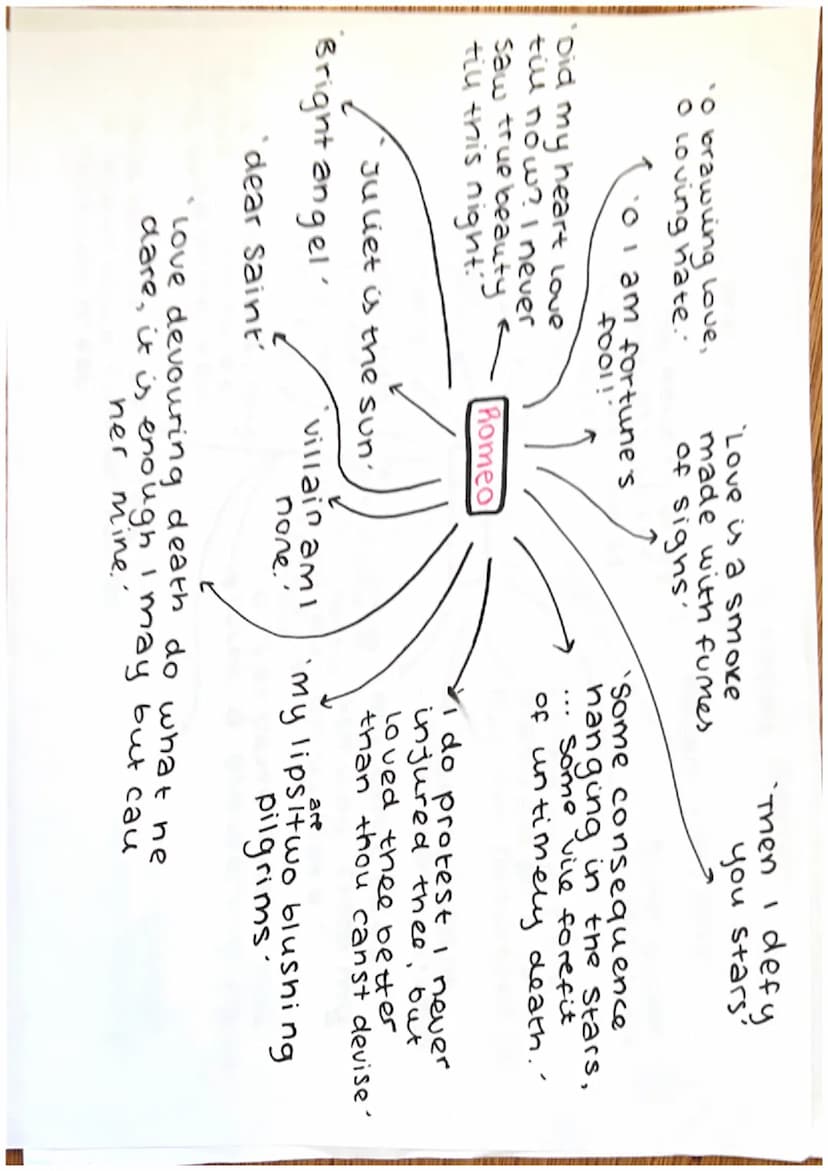 'O brawling love,
O loving hate.'
'Love is a smoke
made with fumes
of sighs.'
'Then I defy
you stars'
'O I am fortune's
fool!'
'Did my heart love
till now? I never
saw true beauty
till this night.'
Romeo
'Some consequence
hanging in the stars,
... some vile forefit
of untimely death.'
'Juliet is the sun.'
'I do protest I never
injured thee, but
loved thee better
than thou canst devise.'
'Bright angel.'
'villain am I
none.'
'my lips are two blushing
pilgrims.'
'dear saint'
'Love devouring death do what he
dare, it is enough I may but call
her mine.'